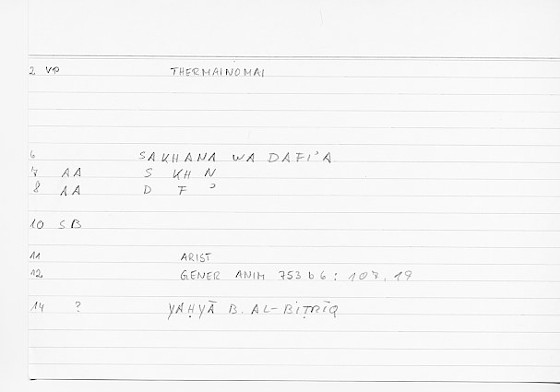 2 VP THERMAINOMAI
6 SAKHANA WA DAFI'A
7 AA S KH N
8 AA D F '
10 SB
11 ARIST
12 GENER ANIM 753 b 6 : 108.19
14 ? YAḤYĀ B. AL-BIṬRĪQ